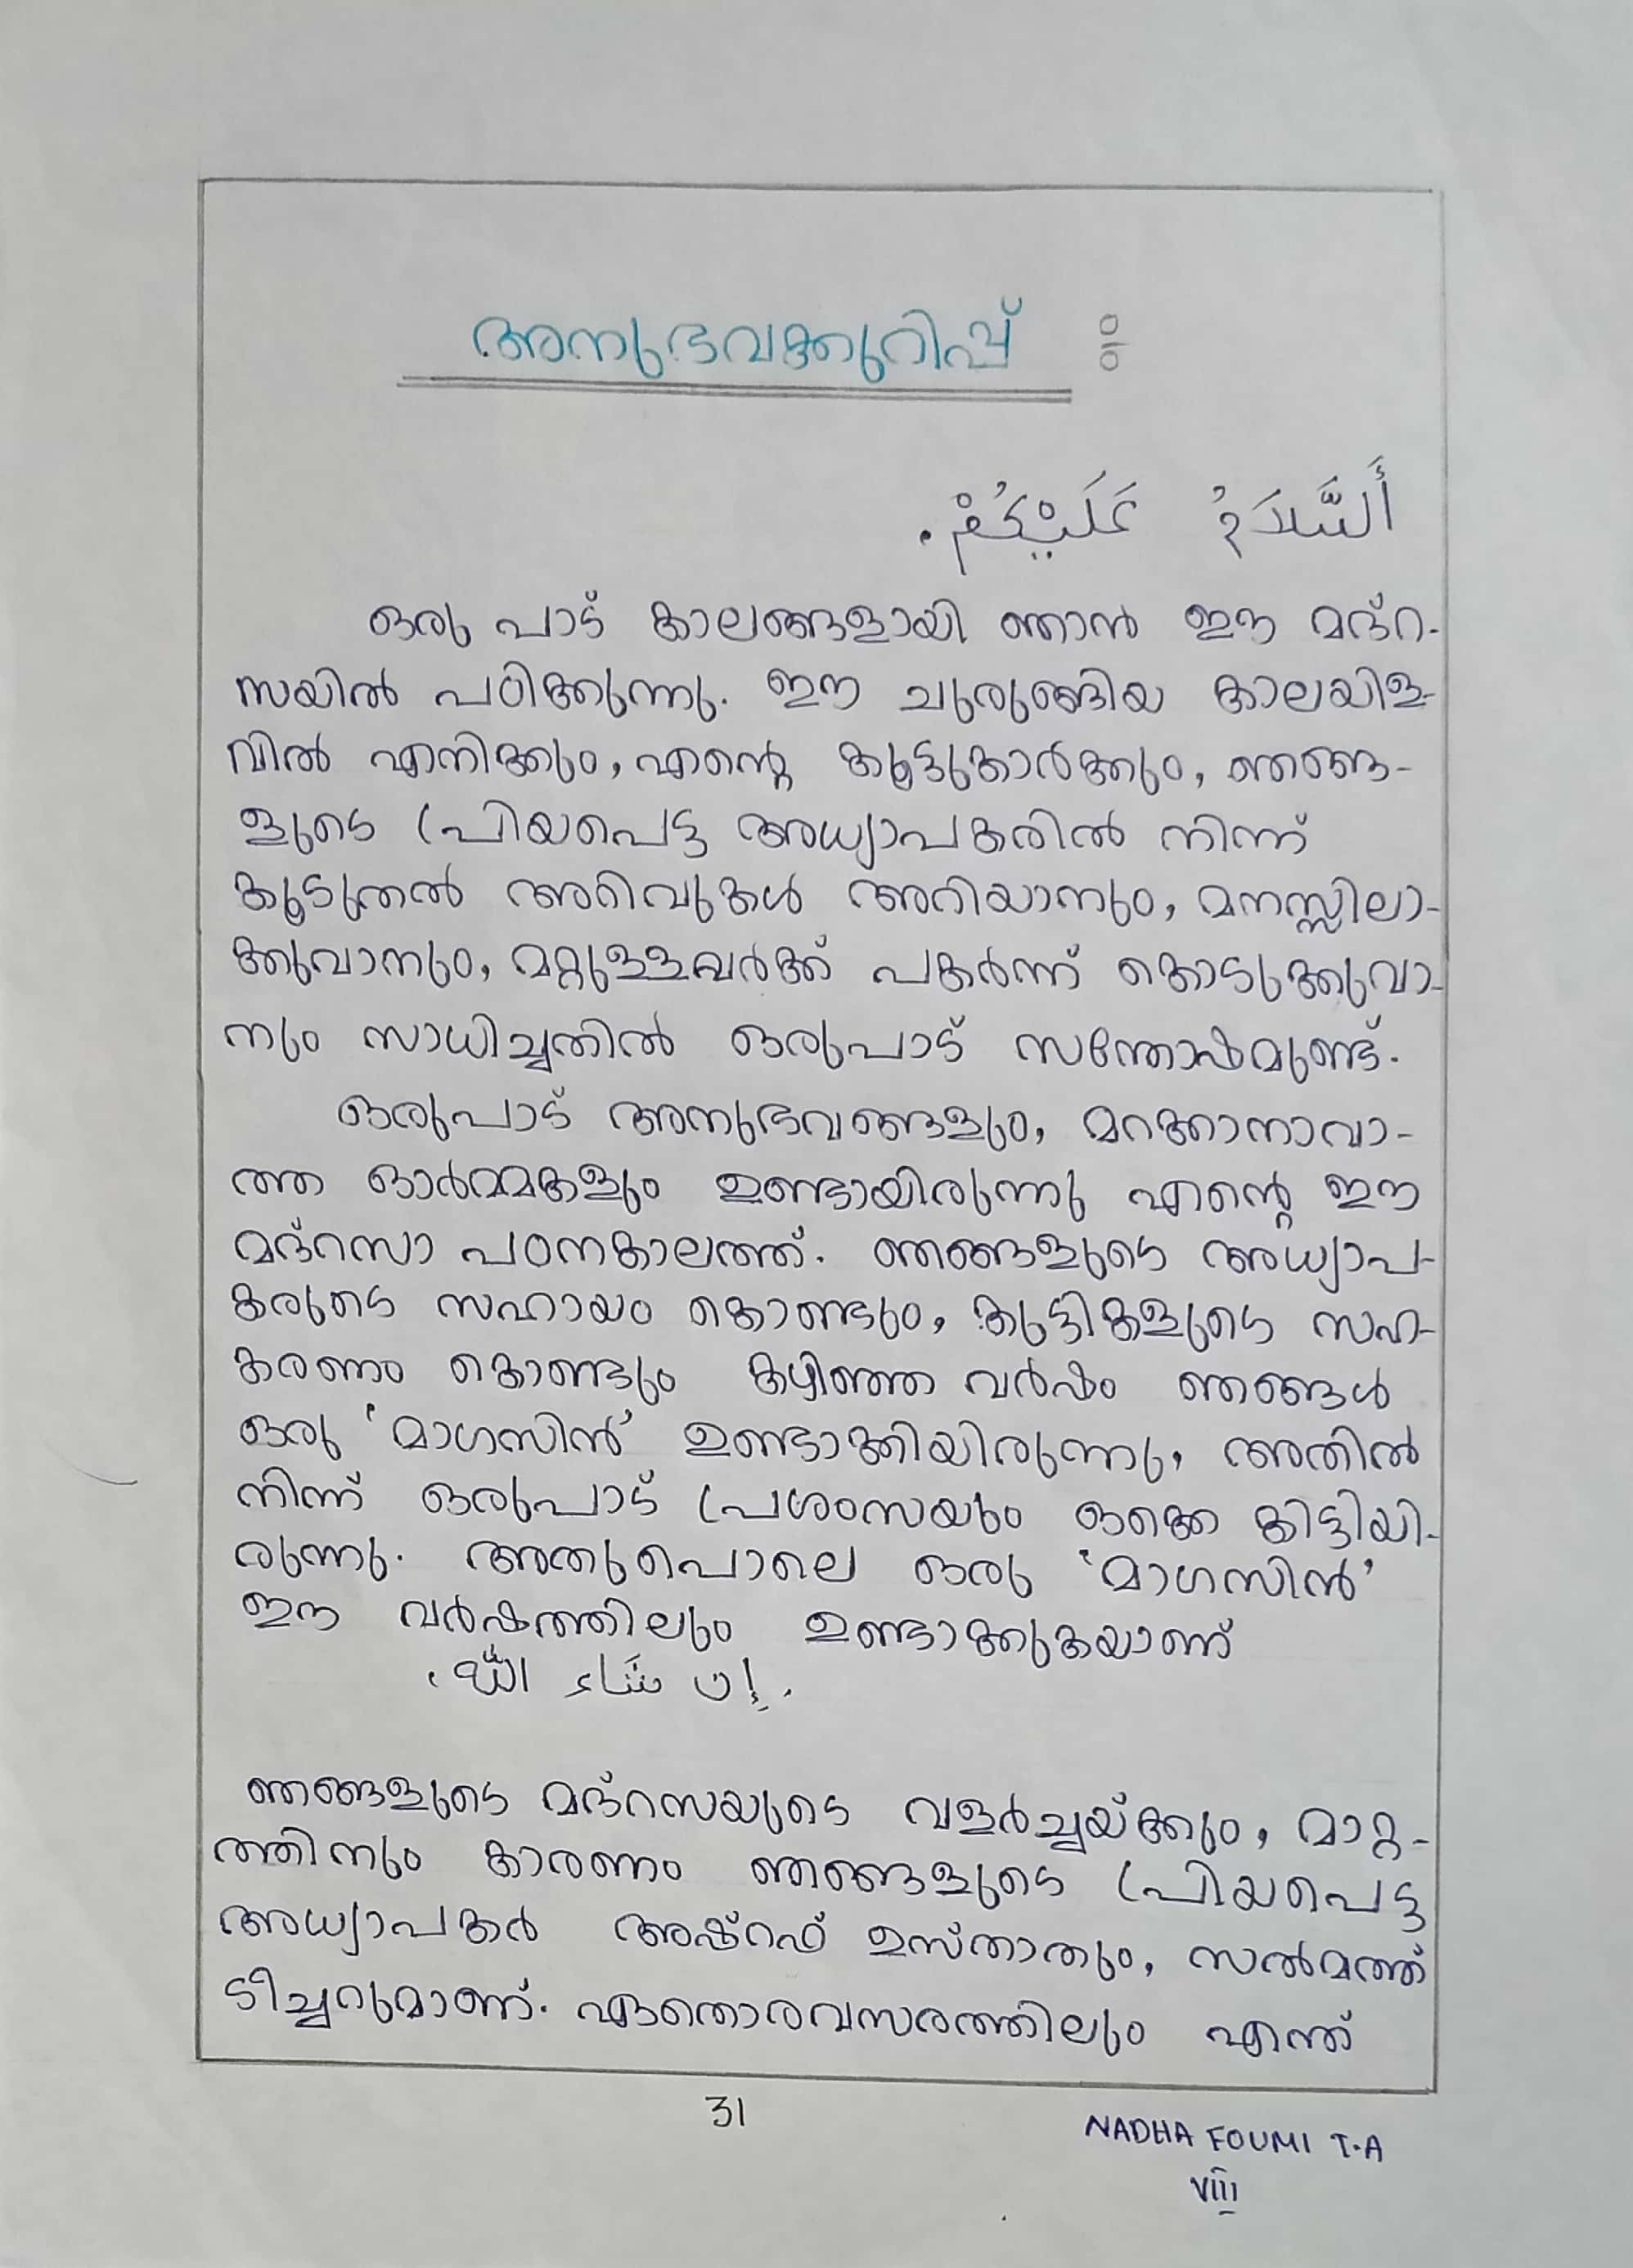 അനുഭവക്കുറിപ്പ് :
أَلسَّلَامُ عَلَيْكُمْ.
ഒരു പാട് കാലങ്ങളായി ഞാൻ ഈ മദ്റ-
സയിൽ പഠിക്കുന്നു. ഈ ചുരുങ്ങിയ കാലയിള-
വിൽ എനിക്കും, എന്റെ കൂട്ടുകാർക്കും, ഞങ്ങ-
ളുടെ പ്രിയപെട്ട അധ്യാപകരിൽ നിന്ന്
കൂടുതൽ അറിവുകൾ അറിയാനും, മനസ്സിലാ-
ക്കുവാനും, മറ്റുള്ളവർക്ക് പകർന്ന് കൊടുക്കുവാ-
നും സാധിച്ചതിൽ ഒരുപാട് സന്തോഷമുണ്ട്.
ഒരുപാട് അനുഭവങ്ങളും, മറക്കാനാവാ-
ത്ത ഓർമ്മകളും ഉണ്ടായിരുന്നു എന്റെ ഈ
മദ്റസാ പഠനകാലത്ത്. ഞങ്ങളുടെ അധ്യാപ-
കരുടെ സഹായം കൊണ്ടും, കുട്ടികളുടെ സഹ-
കരണം കൊണ്ടും കഴിഞ്ഞ വർഷം ഞങ്ങൾ
ഒരു 'മാഗസിൻ' ഉണ്ടാക്കിയിരുന്നു, അതിൽ
നിന്ന് ഒരുപാട് പ്രശംസയും ഒക്കെ കിട്ടിയി-
രുന്നു. അതുപൊലെ ഒരു 'മാഗസിൻ'
ഈ വർഷത്തിലും ഉണ്ടാക്കുകയാണ്
إن شَاء اللّٰه.
ഞങ്ങളുടെ മദ്റസയുടെ വളർച്ചയ്ക്കും, മാറ്റ-
ത്തിനും കാരണം ഞങ്ങളുടെ പ്രിയപെട്ട
അധ്യാപകർ അഷ്റഫ് ഉസ്താതും, സൽമത്ത്
ടീച്ചറുമാണ്. ഏതൊരവസരത്തിലും എന്ത്
31
NADHA FOUMI T.A
VIII